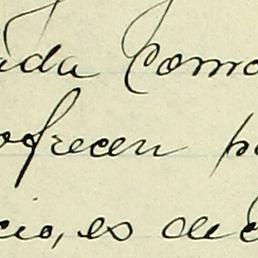 ada como
ofrecen p
cio, es dec